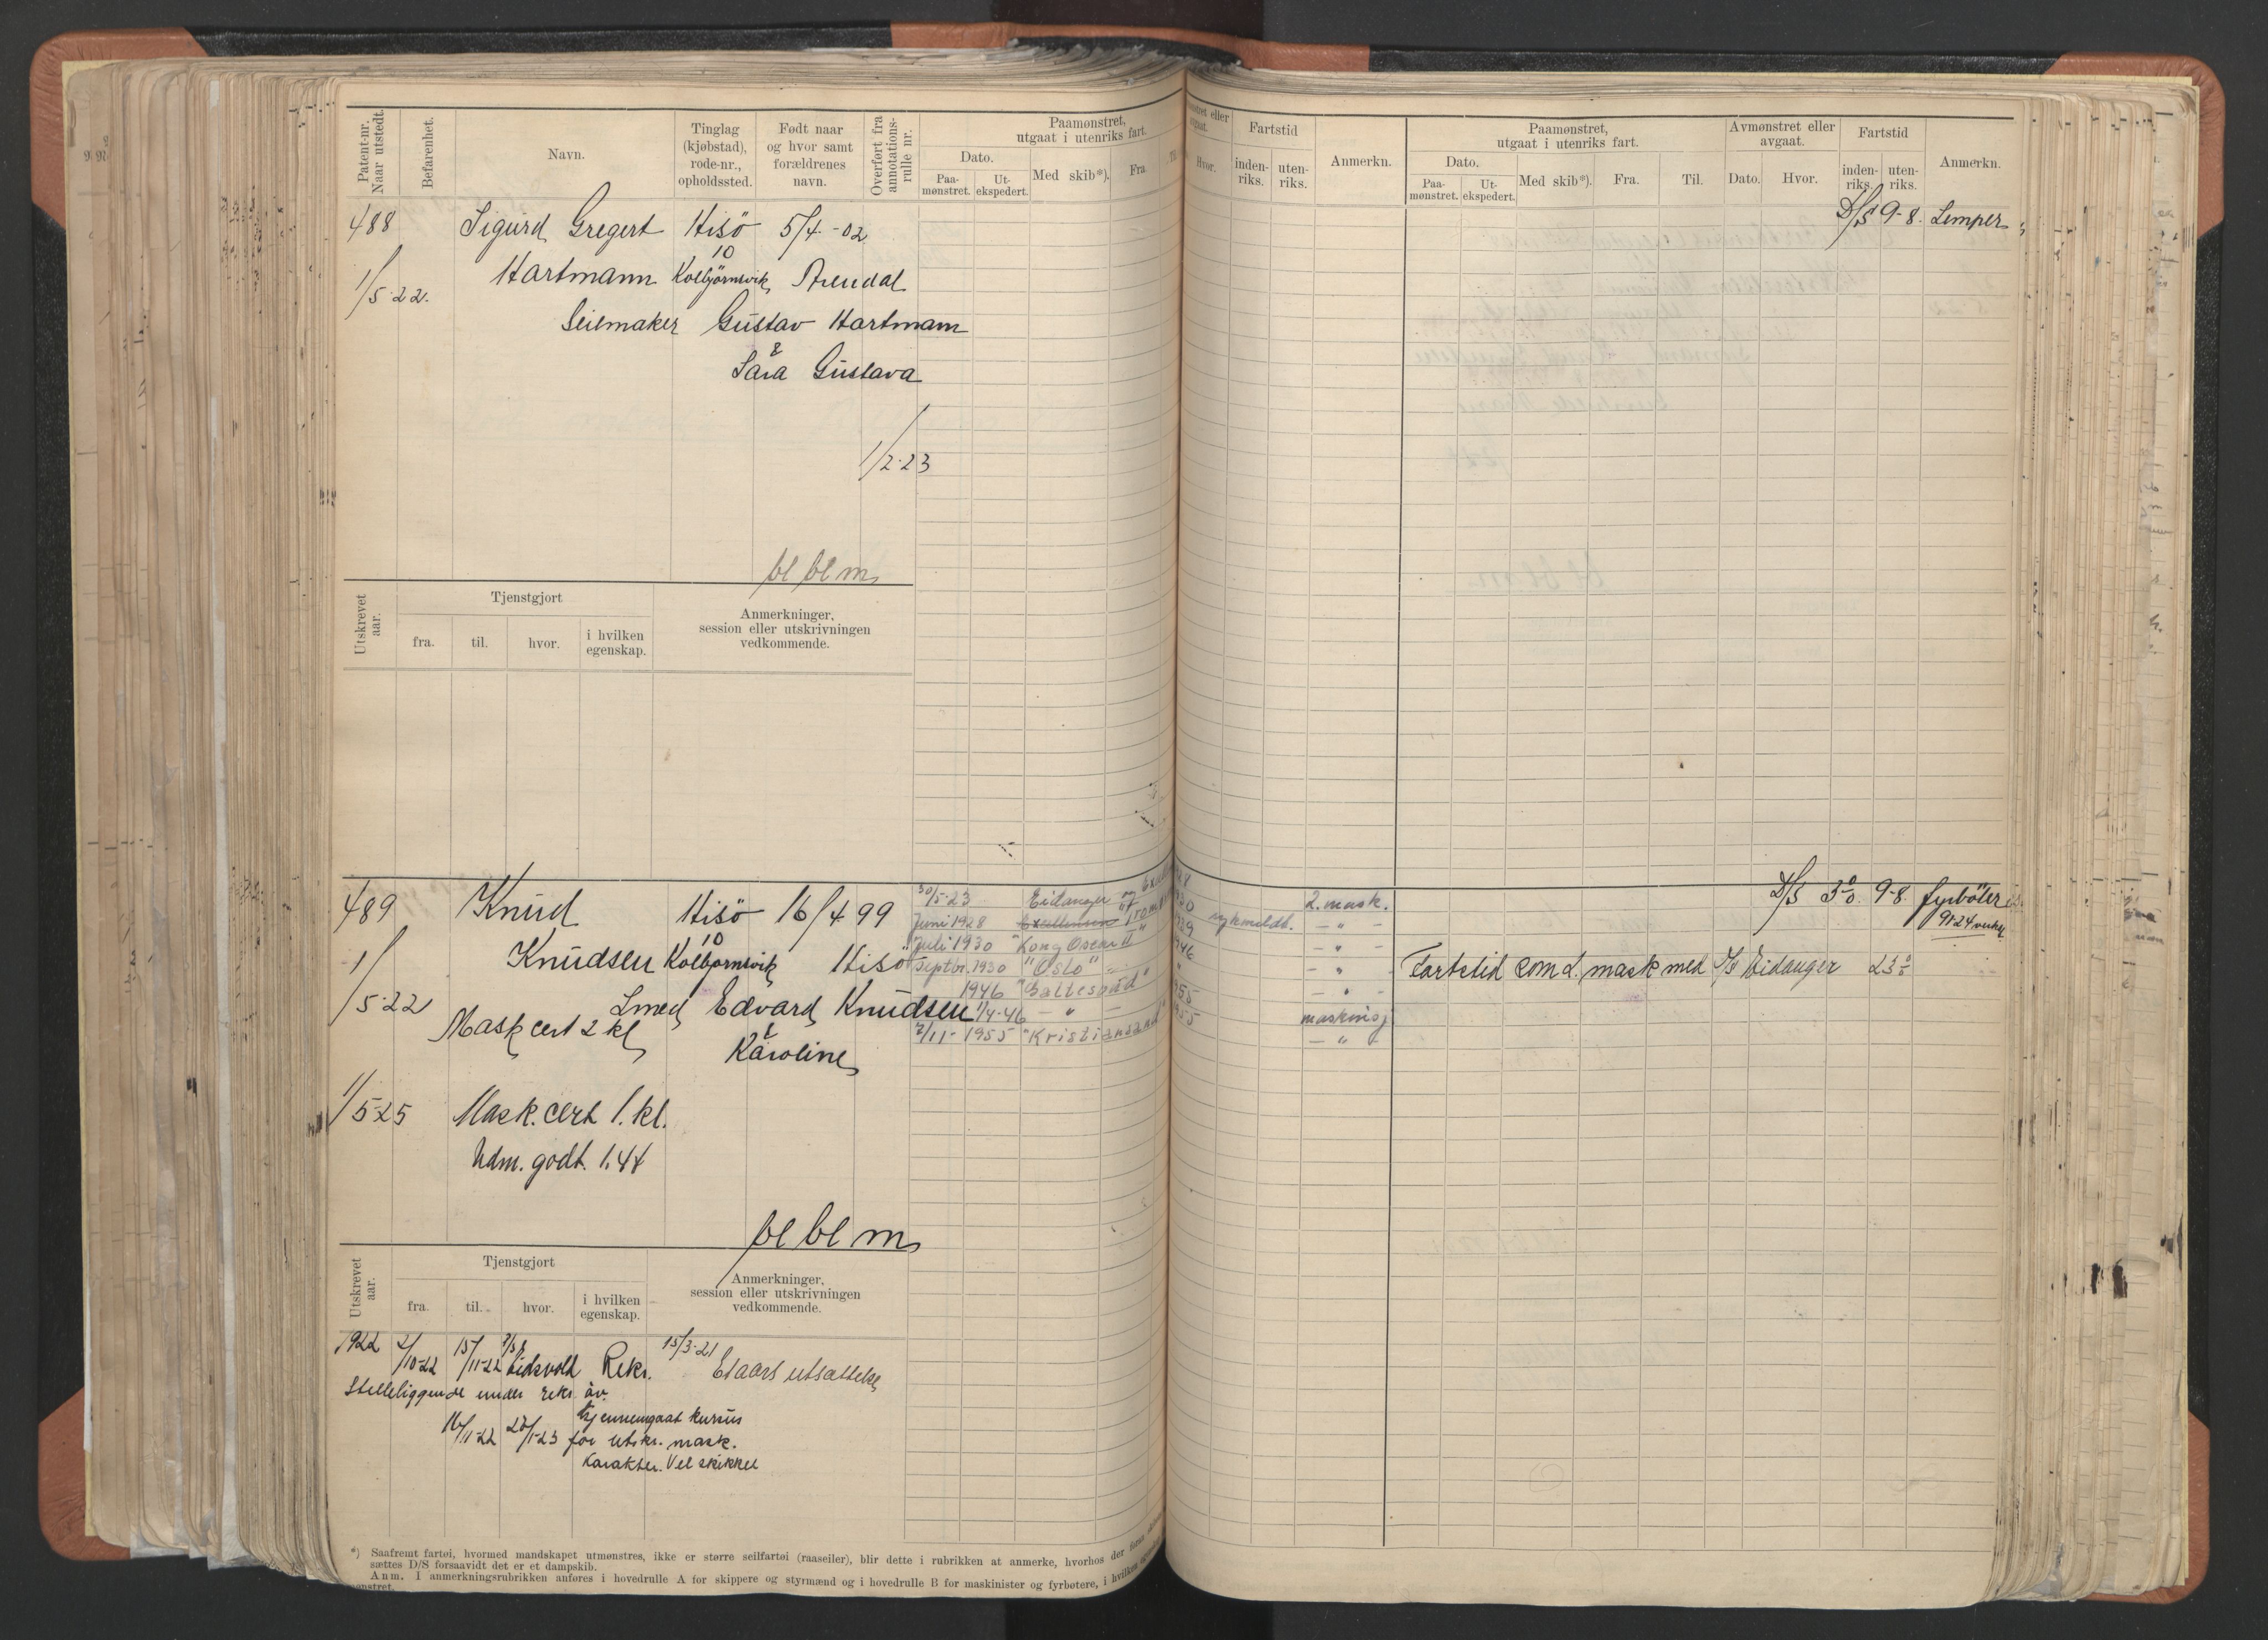 Patent-nr. Naar utstedt.
Befarenhet.
Navn.
Tinglag (kjøbstad), rode-nr., opholdssted.
Født naar og hvor samt forældrenes navn.
Overført fra annotations-rulle nr.
Paamønstret, utgaat i utenriks fart.
Dato.
Paa-mønstret.
Ut-ekspedert.
Med skib*).
Fra.
Hvor.
Fartstid
inden-riks.
uten-riks.
Anmerkn.
Paamønstret, utgaat i utenriks fart.
Dato.
Paa-mønstret.
Ut-ekspedert.
Med skib*).
Fra.
Til.
Avmønstret eller avgaat.
Dato.
Hvor.
Fartstid
inden-riks.
uten-riks.
Anmerkn.
488 Sigurd Gregert Hisö 5/4-02
D/S 9-8. Lemper
10
1/5.22. Hartmann Kolbjörnsvik Arendal
Seilmaker Gustav Hartmann
&
Sara Gustava
1/2.23
bl bl m
Utskrevet aar.
Tjenstgjort
fra.
til.
hvor.
i hvilken egenskap.
Anmerkninger, session eller utskrivningen vedkommende.
489 Knud Hisö 16/4 99
30/5-23 Eidanger
2. mask.
D/S 9-8 fyrböter
Juni 1928
sykmeldt. - " -
10
Knudsen Kolbjørnsvik Hisö
Juli 1930 "Kong Oscar II"
- " -
1/5.22
Septbr. 1930 "Oslo"
- " -
Fartstid som 2. mask med S/S Eidanger
1946 "Galtesund"
- " -
Smed Edvard Knudsen
1/4-46 - " -
maskinsj
Mask cert 2 kl
7/11-1955 "Kristiansand"
- " -
&
Karoline
1/5-25 Mask. cert 1. kl.
Udm. godt. 1.44
bl bl m
Utskrevet aar.
Tjenstgjort
fra.
til.
hvor.
i hvilken egenskap.
Anmerkninger, session eller utskrivningen vedkommende.
1922 2/10-22 15/11-22 P/S Eidsvold Rekr. 15/3-21 Et aars utsættelse
Stilleliggende under rekr. öv.
16/11-22 27/1-23 Gjennemgaat kursus
for utskr. mask.
Karakter. Vel skikket
*) Saafremt fartøi, hvormed mandskapet utmønstres, ikke er større seilfartøi (raaseiler), blir dette i rubrikken at anmerke, hvorhos der foran
sættes D/S forsaavidt det er et dampskib.
Anm. I anmerkningsrubrikken anføres i hovedrulle A for skippere og styrmænd og i hovedrulle B for maskinister og fyrbøtere, i hvilken
mønstret.